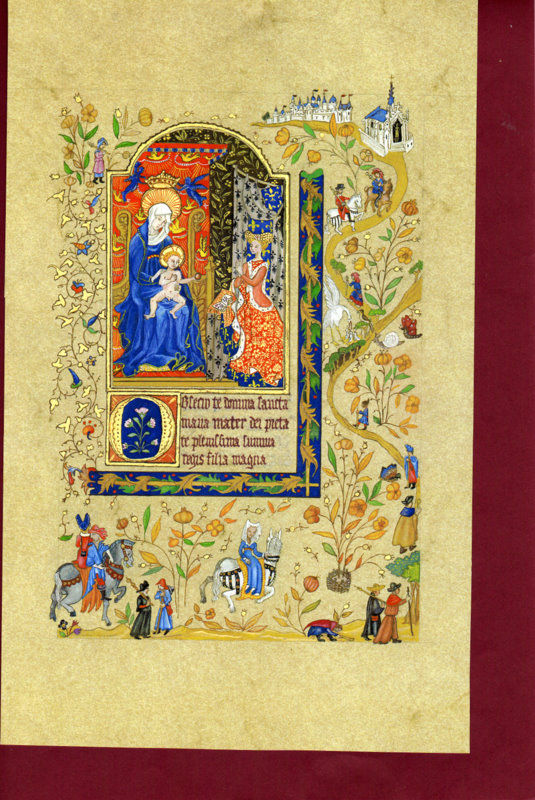 OBsecro te domina sancta
maria mater dei pieta
te plenissima summa
regis filia magna